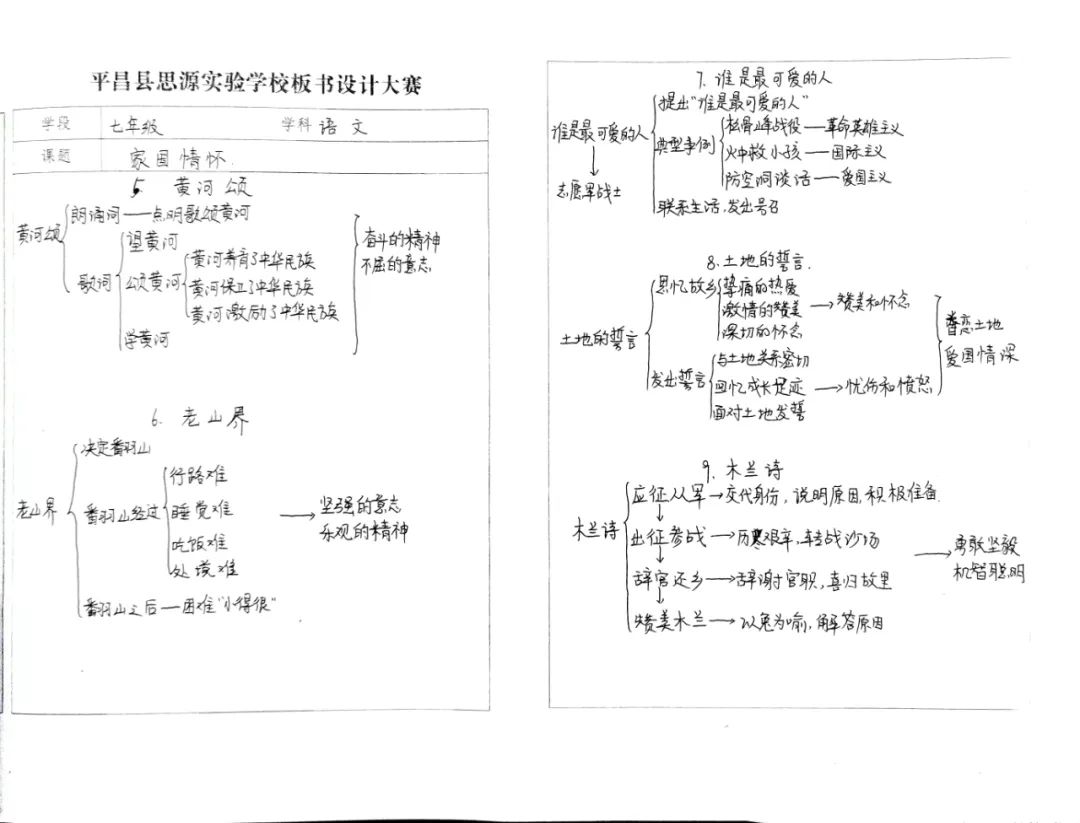 平昌县思源实验学校板书设计大赛
学段 七年级 学科 语文
课题 家国情怀
5. 黄河颂
黄河颂
朗诵词——点明歌颂黄河
歌词
望黄河
颂黄河
黄河养育了中华民族
黄河保卫了中华民族
黄河激励了中华民族
学黄河
奋斗的精神
不屈的意志
6. 老山界
老山界
决定翻山
翻山经过
行路难
睡觉难
吃饭难
处境难
→坚强的意志
乐观的精神
翻山之后—困难"小得很"
7. 谁是最可爱的人
谁是最可爱的人
↓
志愿军战士
提出"谁是最可爱的人"
典型事例
松骨峰战役——革命英雄主义
火中救小孩—国际主义
防空洞谈话——爱国主义
联系生活,发出号召
8. 土地的誓言
土地的誓言
思忆故乡
挚痛的热爱
激情的赞美
深切的怀念
→赞美和怀念
发出誓言
与土地关系密切
回忆成长足迹
面对土地发誓
→忧伤和愤怒
眷恋土地
爱国情深
9. 木兰诗
木兰诗
应征从军→交代身份,说明原因,积极准备
↓
出征参战→历寒艰辛,转战沙场
↓
辞官还乡→辞谢官职,喜归故里
↓
赞美木兰→以兔为喻,解答原因
→勇敢坚毅
机智聪明